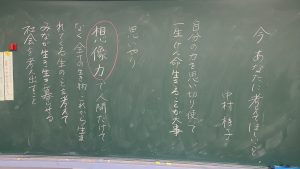 今あなたに考えてほしいこと
中村桂子
自分の力を思い切り使って
一生けん命生きることが大事
思いやり
想像力で人間だけで
なく全ての生き物、これから生ま
れてくる生物のことを考えて
みなが生き生き暮らせる
社会を考え出すこと